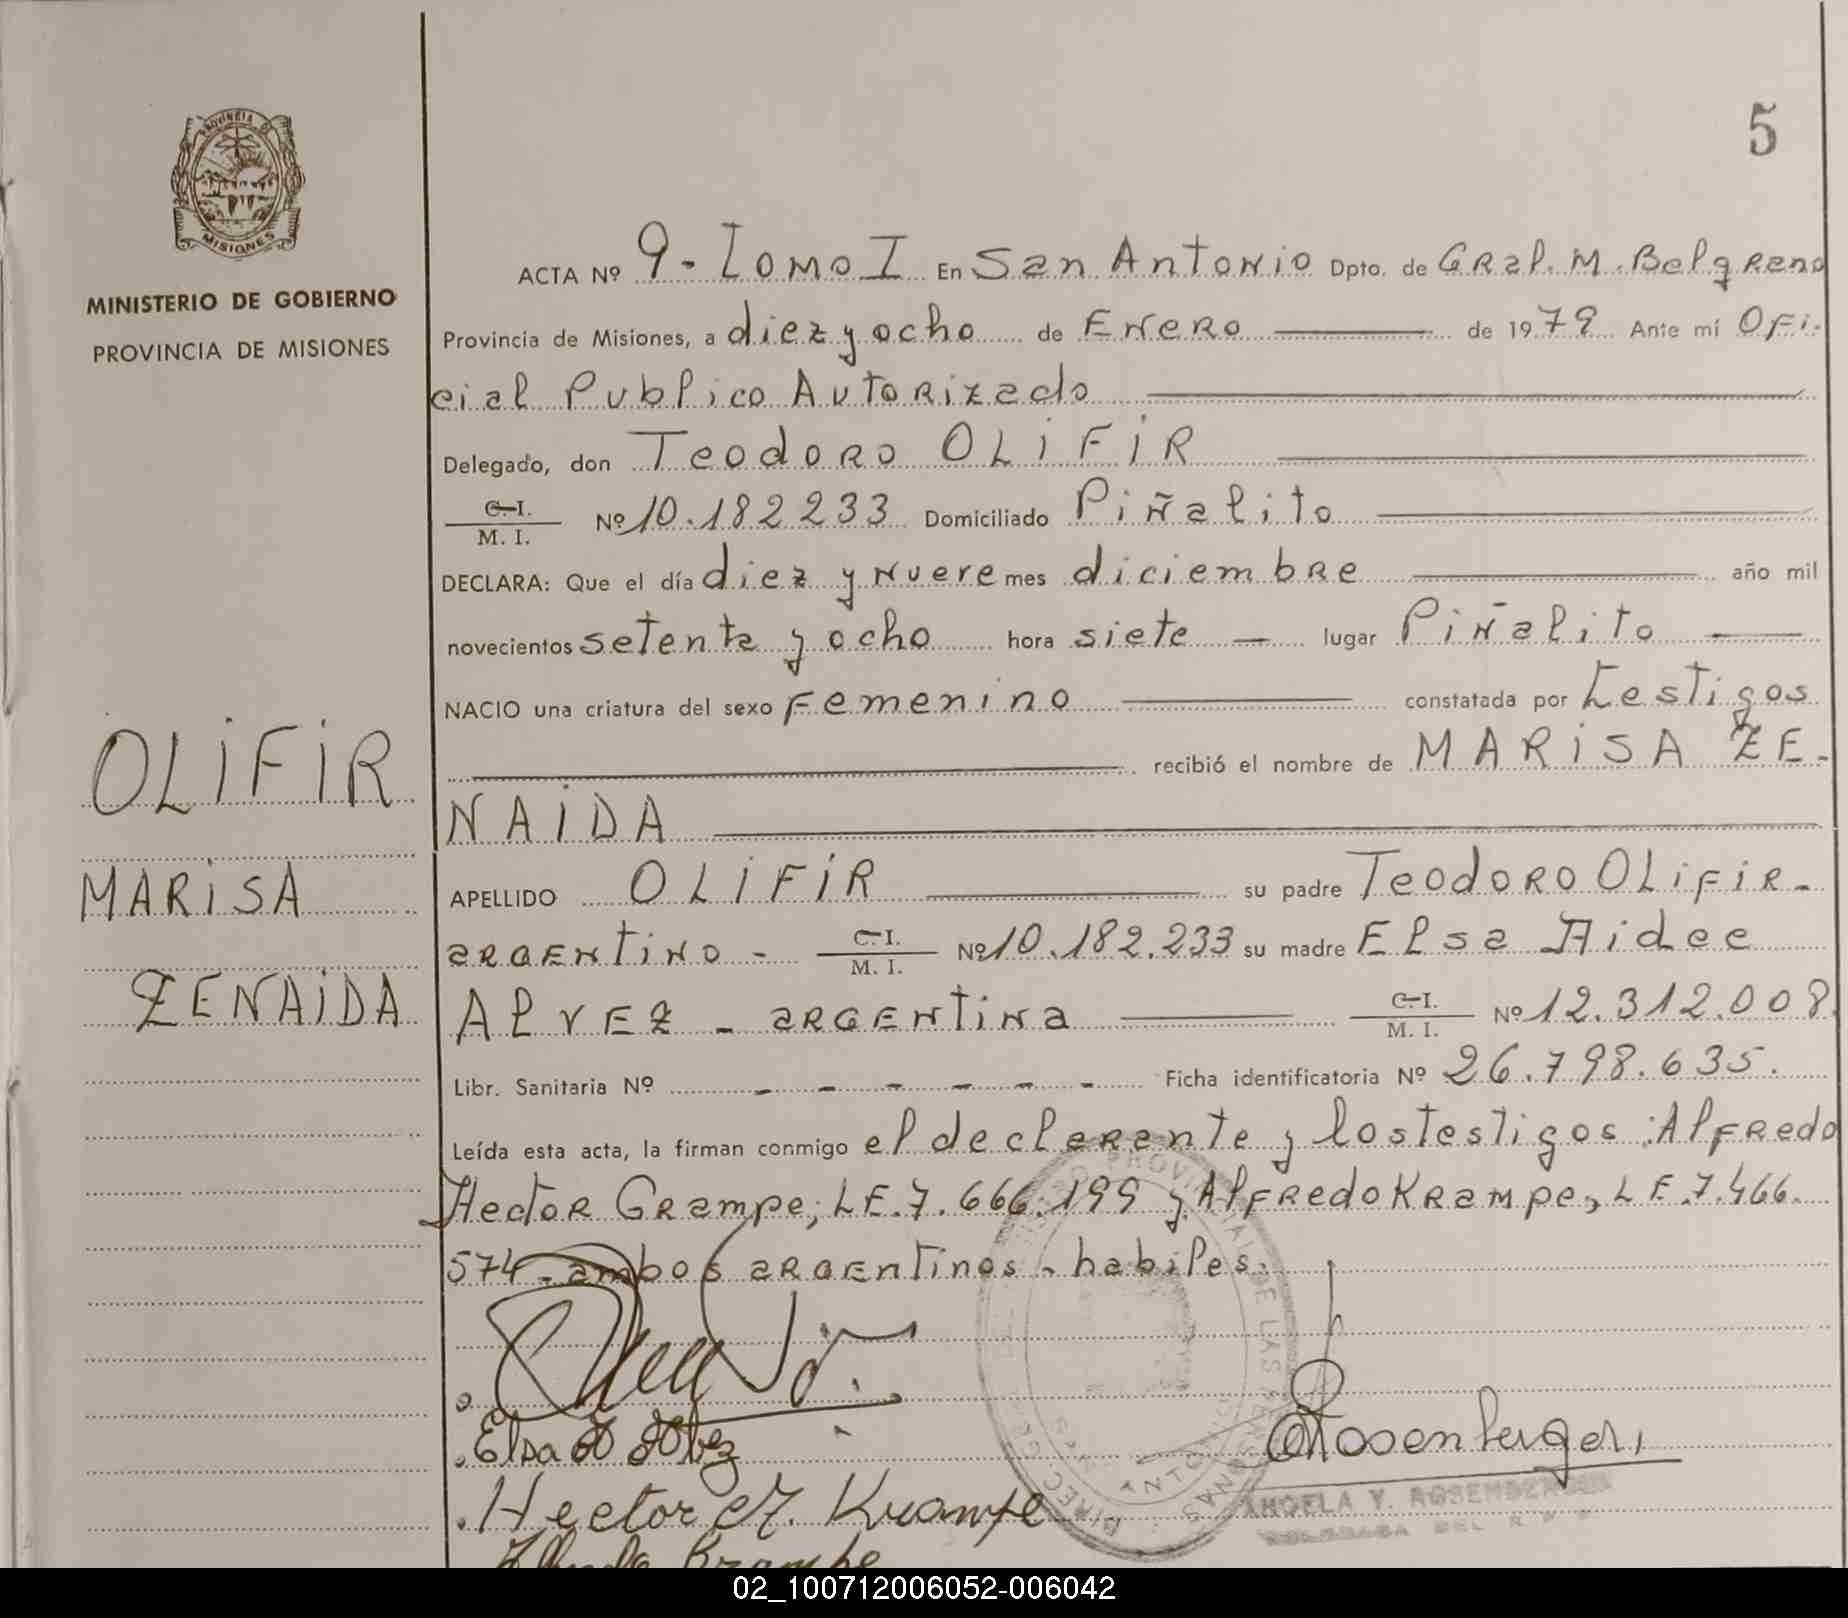 5
PROVINCIA DE
MISIONES
MINISTERIO DE GOBIERNO
PROVINCIA DE MISIONES
OLIFIR
MARISA
ZENAIDA
ACTA Nº 9 - Tomo I En San Antonio Dpto. de Gral. M. Belgrano
Provincia de Misiones, a diez y ocho de Enero de 1979 Ante mí Ofi-
cial Publico Autorizado
Delegado, don Teodoro OLIFIR
C.I. / M. I. Nº 10.182233 Domiciliado Piñalito
DECLARA: Que el día diez y nueve mes diciembre año mil
novecientos setenta y ocho hora siete lugar Piñalito
NACIO una criatura del sexo Femenino constatada por testigos
recibió el nombre de MARISA ZE-
NAIDA
APELLIDO OLIFIR su padre Teodoro OLIFIR-
argentino - C.I. / M. I. Nº 10.182.233 su madre Elsa Aidee
Alvez - argentina C.I. / M. I. Nº 12.312.008
Libr. Sanitaria Nº - - - - - - Ficha identificatoria Nº 26.798.635.
Leída esta acta, la firman conmigo el declarante y los testigos: Alfredo
Hector Grampe; LE. 7.666.199 y Alfredo Krampe, LE. 7.466.
574 - ambos argentinos - habiles.
Elsa A Alvez
Hector A. Krampe
Krampe
Rosenberger
ANGELA Y. ROSENBERGER
DIREC. GEN. PROVINCIAL DE LAS PERSONAS
SAN ANTONIO
02_100712006052-006042